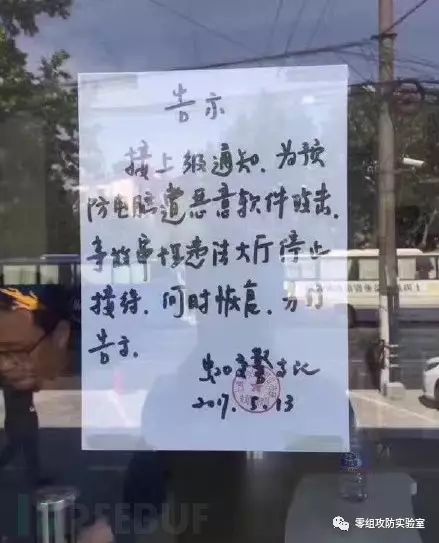 告示
接上级通知,为预
防电脑遭恶意软件攻击,
事故审理违法大厅停止
接待,何时恢复,另行
告示.
交警支队
2017.5.13
REEBUF
零组攻防实验室